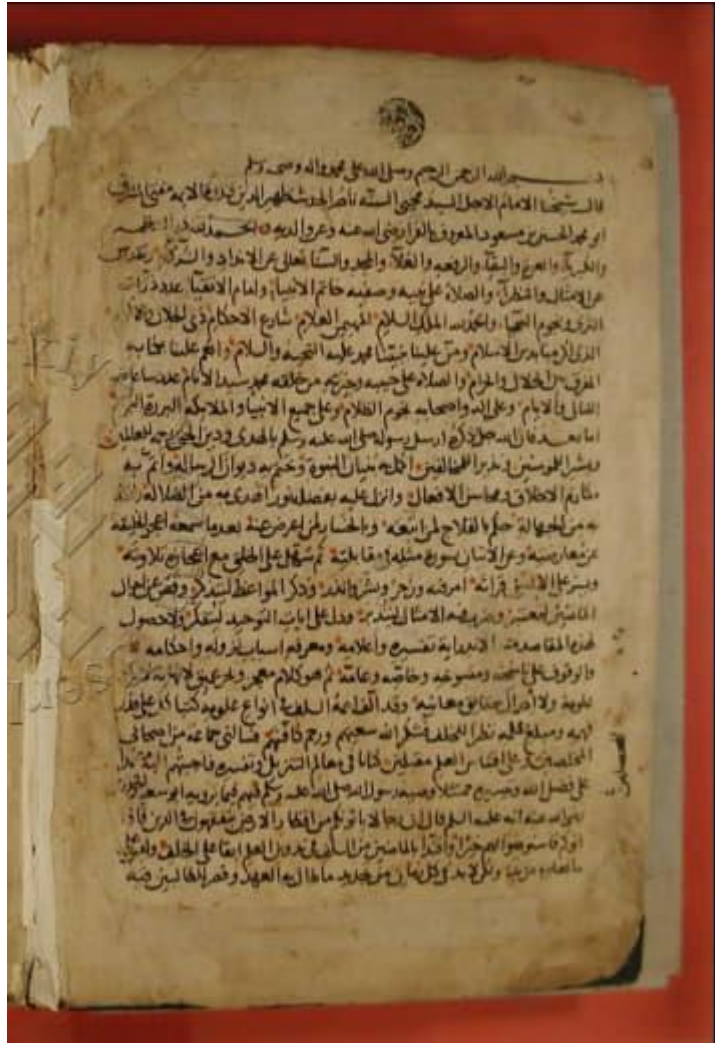 بسم الله الرحمن الرحيم وصلى الله على محمد واله وصحبه وسلم
قال شيخنا الامام الاجل السيد محيي السنه ناصر الحديث ظهير الدين الايمه مفتي الشرق
ابو محمد الحسين بن مسعود المعروف بالفرا رضي الله عنه وعن والديه الحمد لله ذي العظمه
والكبرياء والعزة والبقاء والرفعه والعلاء والمجد والسناء تعالى عن الانداد والشركاء وتقدس
عن الامثال والنظراء والصلاة على نبيه وصفيه خاتم الانبياء وامام الاتقياء عدد ذرات
الثرى ونجوم السماء والحمد لله الملك السلام المهيمن العلام شارع الاحكام ذي الجلال والاكرام
الذي اكرمنا بدين الاسلام ومن علينا بنبينا محمد عليه التحية والسلام وانعم علينا بكتابه
المفرق بين الحلال والحرام والصلاة على حبيبه وخيرته من خلقه محمد سيد الانام عدد ساعات
الليالي والايام وعلى اله واصحابه نجوم الظلام وعلى جميع الانبيا والملايكه البررة الكرام
اما بعد فان الله جل ذكره ارسل رسوله صلى الله عليه وسلم بالهدى ودين الحق رحمه للعالمين
وبشيرا للمومنين ونذيرا للمخالفين اكمل به بنيان النبوة وختم به ديوان الرسالة واتم به
مكارم الاخلاق ومحاسن الافعال وانزل عليه بفضله نورا هدى به من الضلالة وانقذ
به من الجهالة حكم بالفلاح لمن اتبعه وبالخسار لمن اعرض عنه بعدما سمعه اعجز الخليقه
عن معارضته وعن الاتيان بسورة من مثله في مقابلته ثم سهل على الخلق مع اعجازه تلاوته
ويسر على الالسن قراته امر فيه وزجر وبشر وانذر وذكر المواعظ ليتذكر وقص عن احوال
الماضين ليعتبر وضرب فيه الامثال ليتدبر ودل على ايات التوحيد ليتفكر ولا حصول
لهذه المقاصد منه الا بدراية تفسيره واعلامه ومعرفه اسباب نزوله واحكامه
والوقوف على ناسخه ومنسوخه وخاصه وعامه ثم هو كلام معجز وبحر عميق لا نهاية لاسرار
علومه ولا ادراك لحقايق معانيه وقد الف ايمة السلف في انواع علومه كتبا كل على قدر
فهمه ومبلغ علمه نظرا للخلف فشكر الله سعيهم ورحم كافتهم فسالني جماعه من اصحابي
المخلصين وعلى اقتباس العلم مقبلين كتابا في معالم التنزيل وتفسيره فاجبتهم اليه معتمدا
على فضل الله وتيسيره ممتثلا وصية رسول الله صلى الله عليه وسلم فيهم فيما يرويه ابو سعيد الخدري
رضي الله عنه انه عليه السلم قال ان رجالا ياتونكم من اقطار الارض يتفقهون في الدين فاذا
اتوكم فاستوصوا بهم خيرا واقتدا بالماضين من السلف في تدوين العلم ابقا على الخلف وليس على
ما فعلوه مزيد ولكن لا بد في كل زمان من تجديد ما طال به العهد وقصر للطالبين فيه